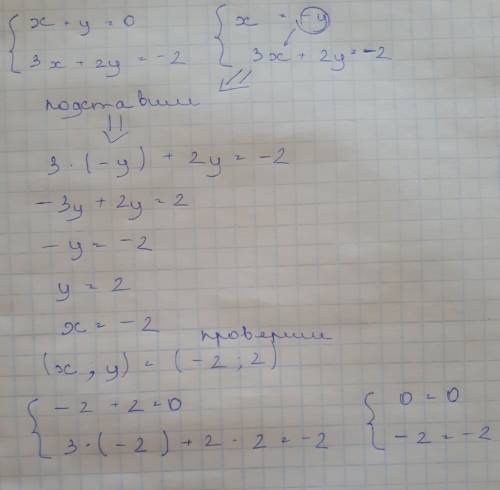 x + y = 0
3x + 2y = -2
x = -y
3x + 2y = -2
подставим
3 · (-y) + 2y = -2
-3y + 2y = 2
-y = -2
y = 2
x = -2
проверим
(x, y) = (-2; 2)
-2 + 2 = 0
3 · (-2) + 2 · 2 = -2
0 = 0
-2 = -2